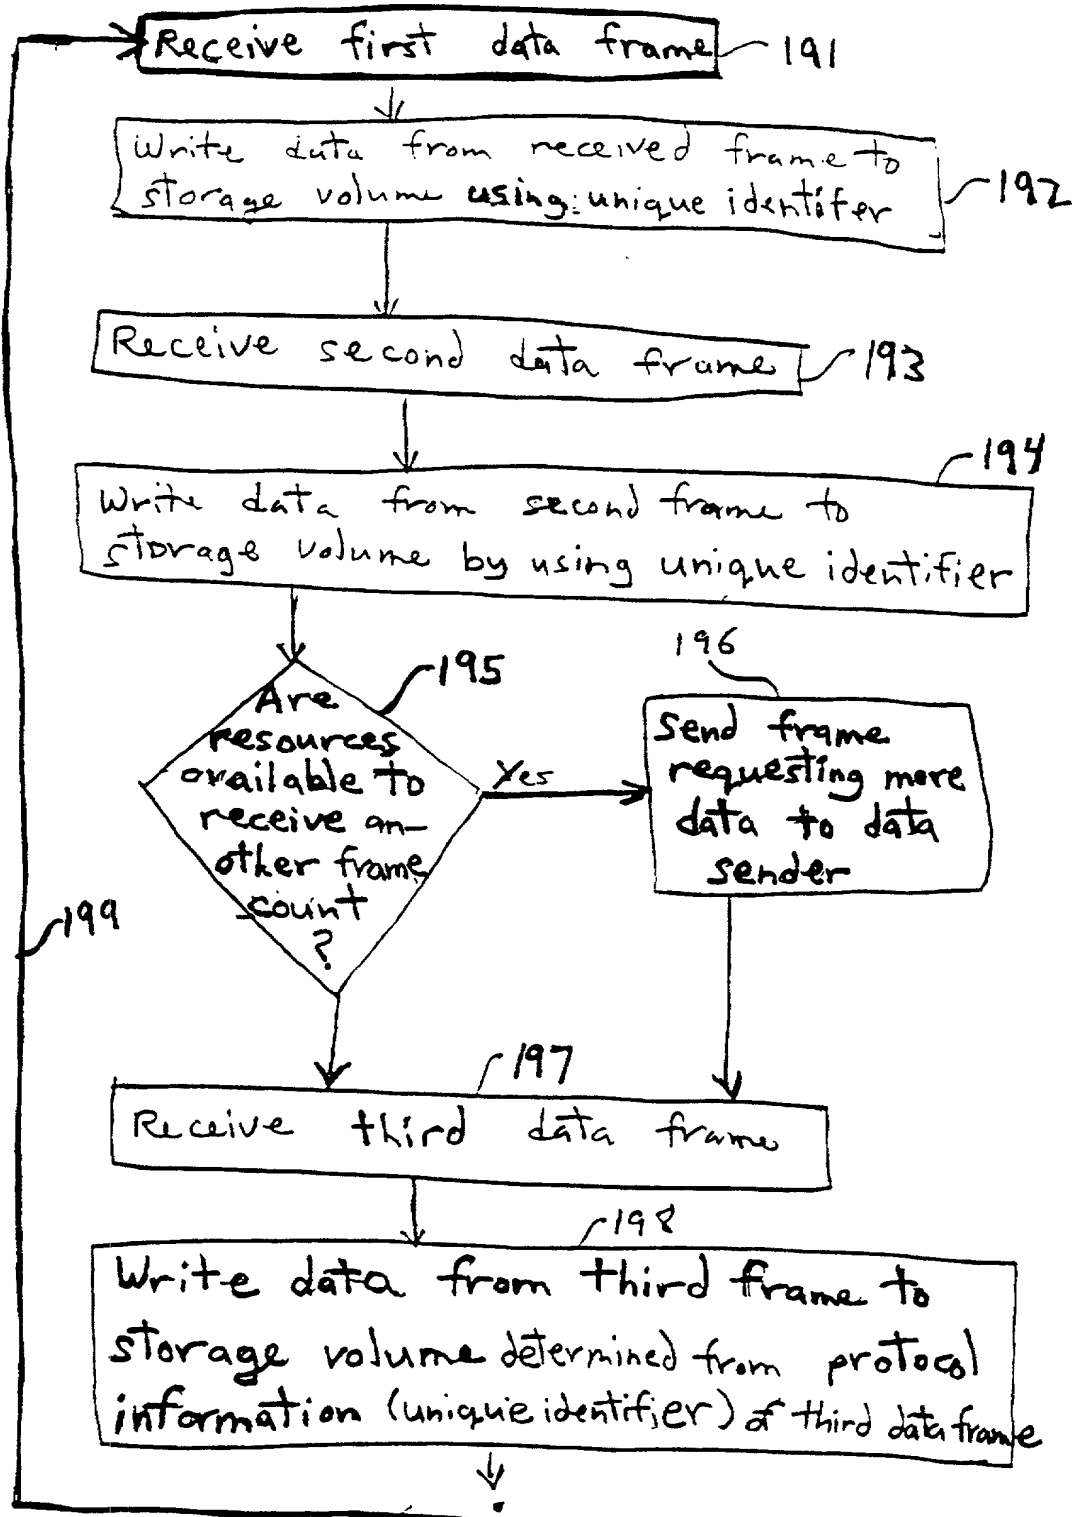 Receive first data frame 191
Write data from received frame to
storage volume using: unique identifer 192
Receive second data frame 193
194
Write data from second frame to
storage volume by using unique identifier
195
Are
resources
available to
receive an-
other frame
count
?
Yes
196
Send frame
requesting more
data to data
sender
199
197
Receive third data frame
198
Write data from third frame to
storage volume determined from protocol
information (unique identifier) of third data frame